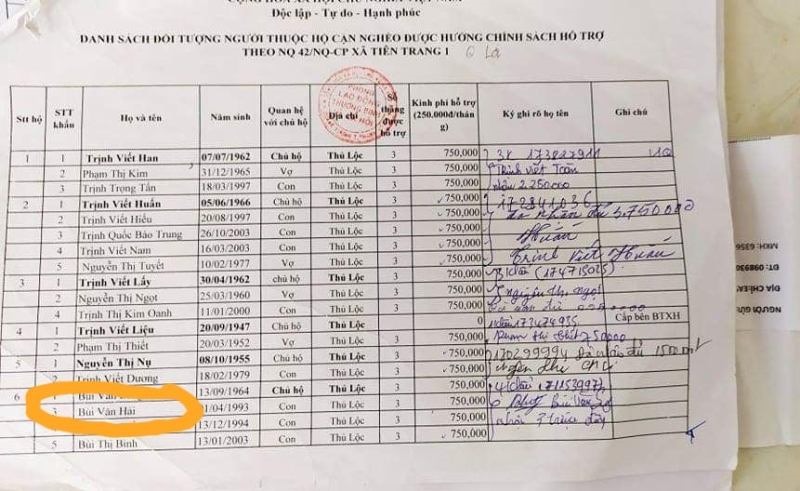 CỘNG HÒA XÃ HỘI CHỦ NGHĨA VIỆT NAM
Độc lập - Tự do - Hạnh phúc
DANH SÁCH ĐỐI TƯỢNG NGƯỜI THUỘC HỘ CẬN NGHÈO ĐƯỢC HƯỞNG CHÍNH SÁCH HỖ TRỢ
THEO NQ 42/NQ-CP XÃ TIÊN TRANG 1
Stt hộ STT khẩu Họ và tên Năm sinh Quan hệ với chủ hộ Địa chỉ Số tháng được hỗ trợ Kinh phí hỗ trợ (250.000đ/tháng) Ký ghi rõ họ tên Ghi chú
PHÒNG LAO ĐỘNG THƯƠNG BINH XÃ HỘI
1 1 Trịnh Viết Han 07/07/1962 Chủ hộ Thủ Lộc 3 750,000
2 Phạm Thị Kim 31/12/1965 Vợ Thủ Lộc 3 750,000 Trịnh Viết Toàn
3 Trịnh Trọng Tấn 18/03/1997 Con Thủ Lộc 3 750,000 2.250.000
2 1 Trịnh Viết Huấn 05/06/1966 Chủ hộ Thủ Lộc 3 750,000 172841036
2 Trịnh Viết Hiếu 20/08/1997 Con Thủ Lộc 3 750,000 đã nhận đủ 3.750.000
3 Trịnh Quốc Bảo Trung 26/10/2003 Con Thủ Lộc 3 750,000 Huấn
4 Trịnh Viết Nam 16/03/2003 Con Thủ Lộc 3 750,000
5 Nguyễn Thị Tuyết 10/02/1977 Vợ Thủ Lộc 3 750,000 Trịnh Viết Huấn
3 1 Trịnh Viết Lấy 30/04/1962 chủ hộ Thủ Lộc 3 750,000
2 Nguyễn Thị Ngọt 25/03/1960 Vợ Thủ Lộc 3 750,000 Nguyễn Thị Ngọt
4 Trịnh Thị Kim Oanh 11/01/2000 Con Thủ Lộc 3 750,000
4 1 Trịnh Viết Liệu 20/09/1947 Chủ hộ Thủ Lộc 0 Cấp bên BTXH
2 Phạm Thị Thiết 20/03/1952 Vợ Thủ Lộc 3 750,000 750000
5 1 Nguyễn Thị Nụ 08/10/1955 Chủ hộ Thủ Lộc 3 750,000 170299994 Đã nhận đủ
2 Trịnh Viết Dương 18/02/1979 Con Thủ Lộc 3 750,000
6 1 Bùi Văn 13/09/1964 Chủ hộ Thủ Lộc 3 750,000
3 Bùi Văn Hải 01/04/1993 Con Thủ Lộc 3 750,000
13/12/1994 Con Thủ Lộc 3 750,000
5 Bùi Thị Bình 13/01/2003 Con Thủ Lộc 3 750,000
NGƯỜI GỬI
ĐỊA CHỈ:
ĐT: 098693
MKH: 6356